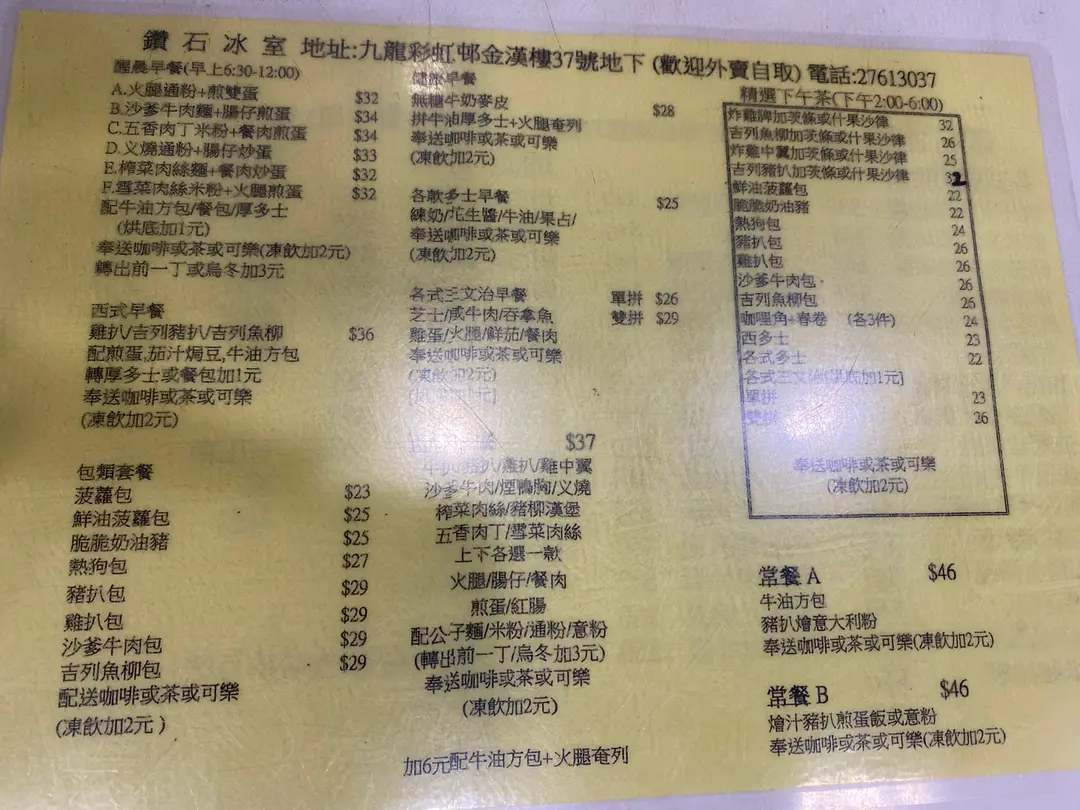 鑽石冰室 地址:九龍彩虹邨金漢樓37號地下 (歡迎外賣自取) 電話:27613037
醒晨早餐(早上6:30-12:00)
A.火腿通粉+煎雙蛋 $32
B.沙爹牛肉麵+腸仔煎蛋 $34
C.五香肉丁米粉+餐肉煎蛋 $34
D.义燒通粉+腸仔炒蛋 $33
E.榨菜肉絲麵+餐肉炒蛋 $32
F.雪菜肉絲米粉+火腿煎蛋 $32
配牛油方包/餐包/厚多士
(烘底加1元)
奉送咖啡或茶或可樂(凍飲加2元)
轉出前一丁或烏冬加3元
西式早餐
雞扒/吉列豬扒/吉列魚柳 $36
配煎蛋,茄汁焗豆,牛油方包
轉厚多士或餐包加1元
奉送咖啡或茶或可樂
(凍飲加2元)
包類套餐
菠蘿包 $23
鮮油菠蘿包 $25
脆脆奶油豬 $25
熱狗包 $27
豬扒包 $29
雞扒包 $29
沙爹牛肉包 $29
吉列魚柳包 $29
配送咖啡或茶或可樂
(凍飲加2元)
健康早餐
無糖牛奶麥皮 $28
拼牛油厚多士+火腿奄列
奉送咖啡或茶或可樂
(凍飲加2元)
各款多士早餐 $25
練奶/花生醬/牛油/果占/
奉送咖啡或茶或可樂
(凍飲加2元)
各式三文治早餐 單拼 $26
芝士/咸牛肉/吞拿魚 雙拼 $29
雞蛋/火腿/鮮茄/餐肉
奉送咖啡或茶或可樂
(凍飲加2元)
$37
牛扒/豬扒/雞扒/雞中翼
沙爹牛肉/煙鴨胸/义燒
榨菜肉絲/豬柳漢堡
五香肉丁/雪菜肉絲
上下各選一款
火腿/腸仔/餐肉
煎蛋/紅腸
配公子麵/米粉/通粉/意粉
(轉出前一丁/烏冬加3元)
奉送咖啡或茶或可樂
(凍飲加2元)
加6元配牛油方包+火腿奄列
精選下午茶(下午2:00-6:00)
炸雞髀加茨條或什果沙律 32
吉列魚柳加茨條或什果沙律 26
炸雞中翼加茨條或什果沙律 25
吉列豬扒加茨條或什果沙律 32
鮮油菠蘿包 22
脆脆奶油豬 22
熱狗包 24
豬扒包 26
雞扒包 26
沙爹牛肉包 26
吉列魚柳包 26
咖哩角+春卷 (各3件) 24
西多士 23
各式多士 22
各式三文治[烘底加1元]
單拼 23
雙拼 26
奉送咖啡或茶或可樂
(凍飲加2元)
常餐 A $46
牛油方包
豬扒燴意大利粉
奉送咖啡或茶或可樂(凍飲加2元)
常餐 B $46
燴汁豬扒煎蛋飯或意粉
奉送咖啡或茶或可樂(凍飲加2元)